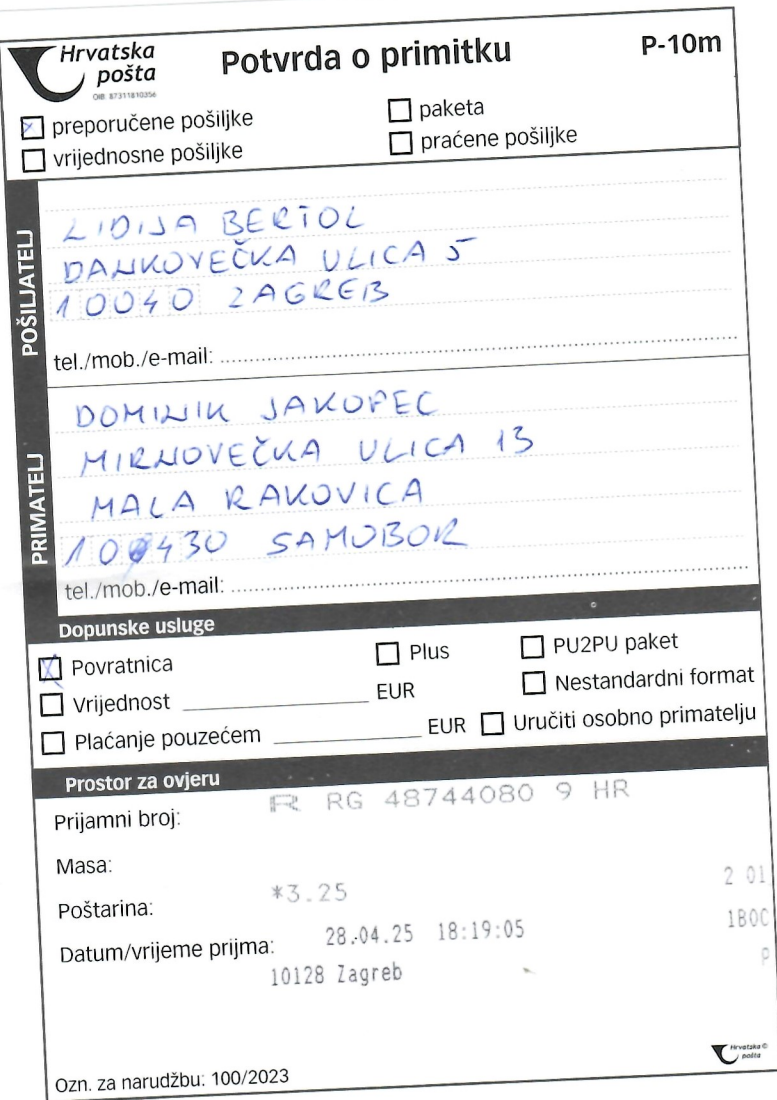 Hrvatska pošta
OIB: 87311810356
Potvrda o primitku
P-10m
preporučene pošiljke
paketa
vrijednosne pošiljke
praćene pošiljke
POŠILJATELJ
LIDIJA BERTOL
DANKOVEČKA ULICA 5
10040 ZAGREB
tel./mob./e-mail:
PRIMATELJ
DOMINIK JAKOPEC
MIRNOVEČKA ULICA 13
MALA RAKOVICA
10430 SAMOBOR
tel./mob./e-mail:
Dopunske usluge
Povratnica
Plus
PU2PU paket
Vrijednost EUR
Nestandardni format
Plaćanje pouzećem EUR
Uručiti osobno primatelju
Prostor za ovjeru
Prijamni broj: R RG 48744080 9 HR
Masa:
Poštarina: *3.25
2 01
Datum/vrijeme prijma: 28.04.25 18:19:05
1B0C
10128 Zagreb
P
Hrvatska pošta
Ozn. za narudžbu: 100/2023